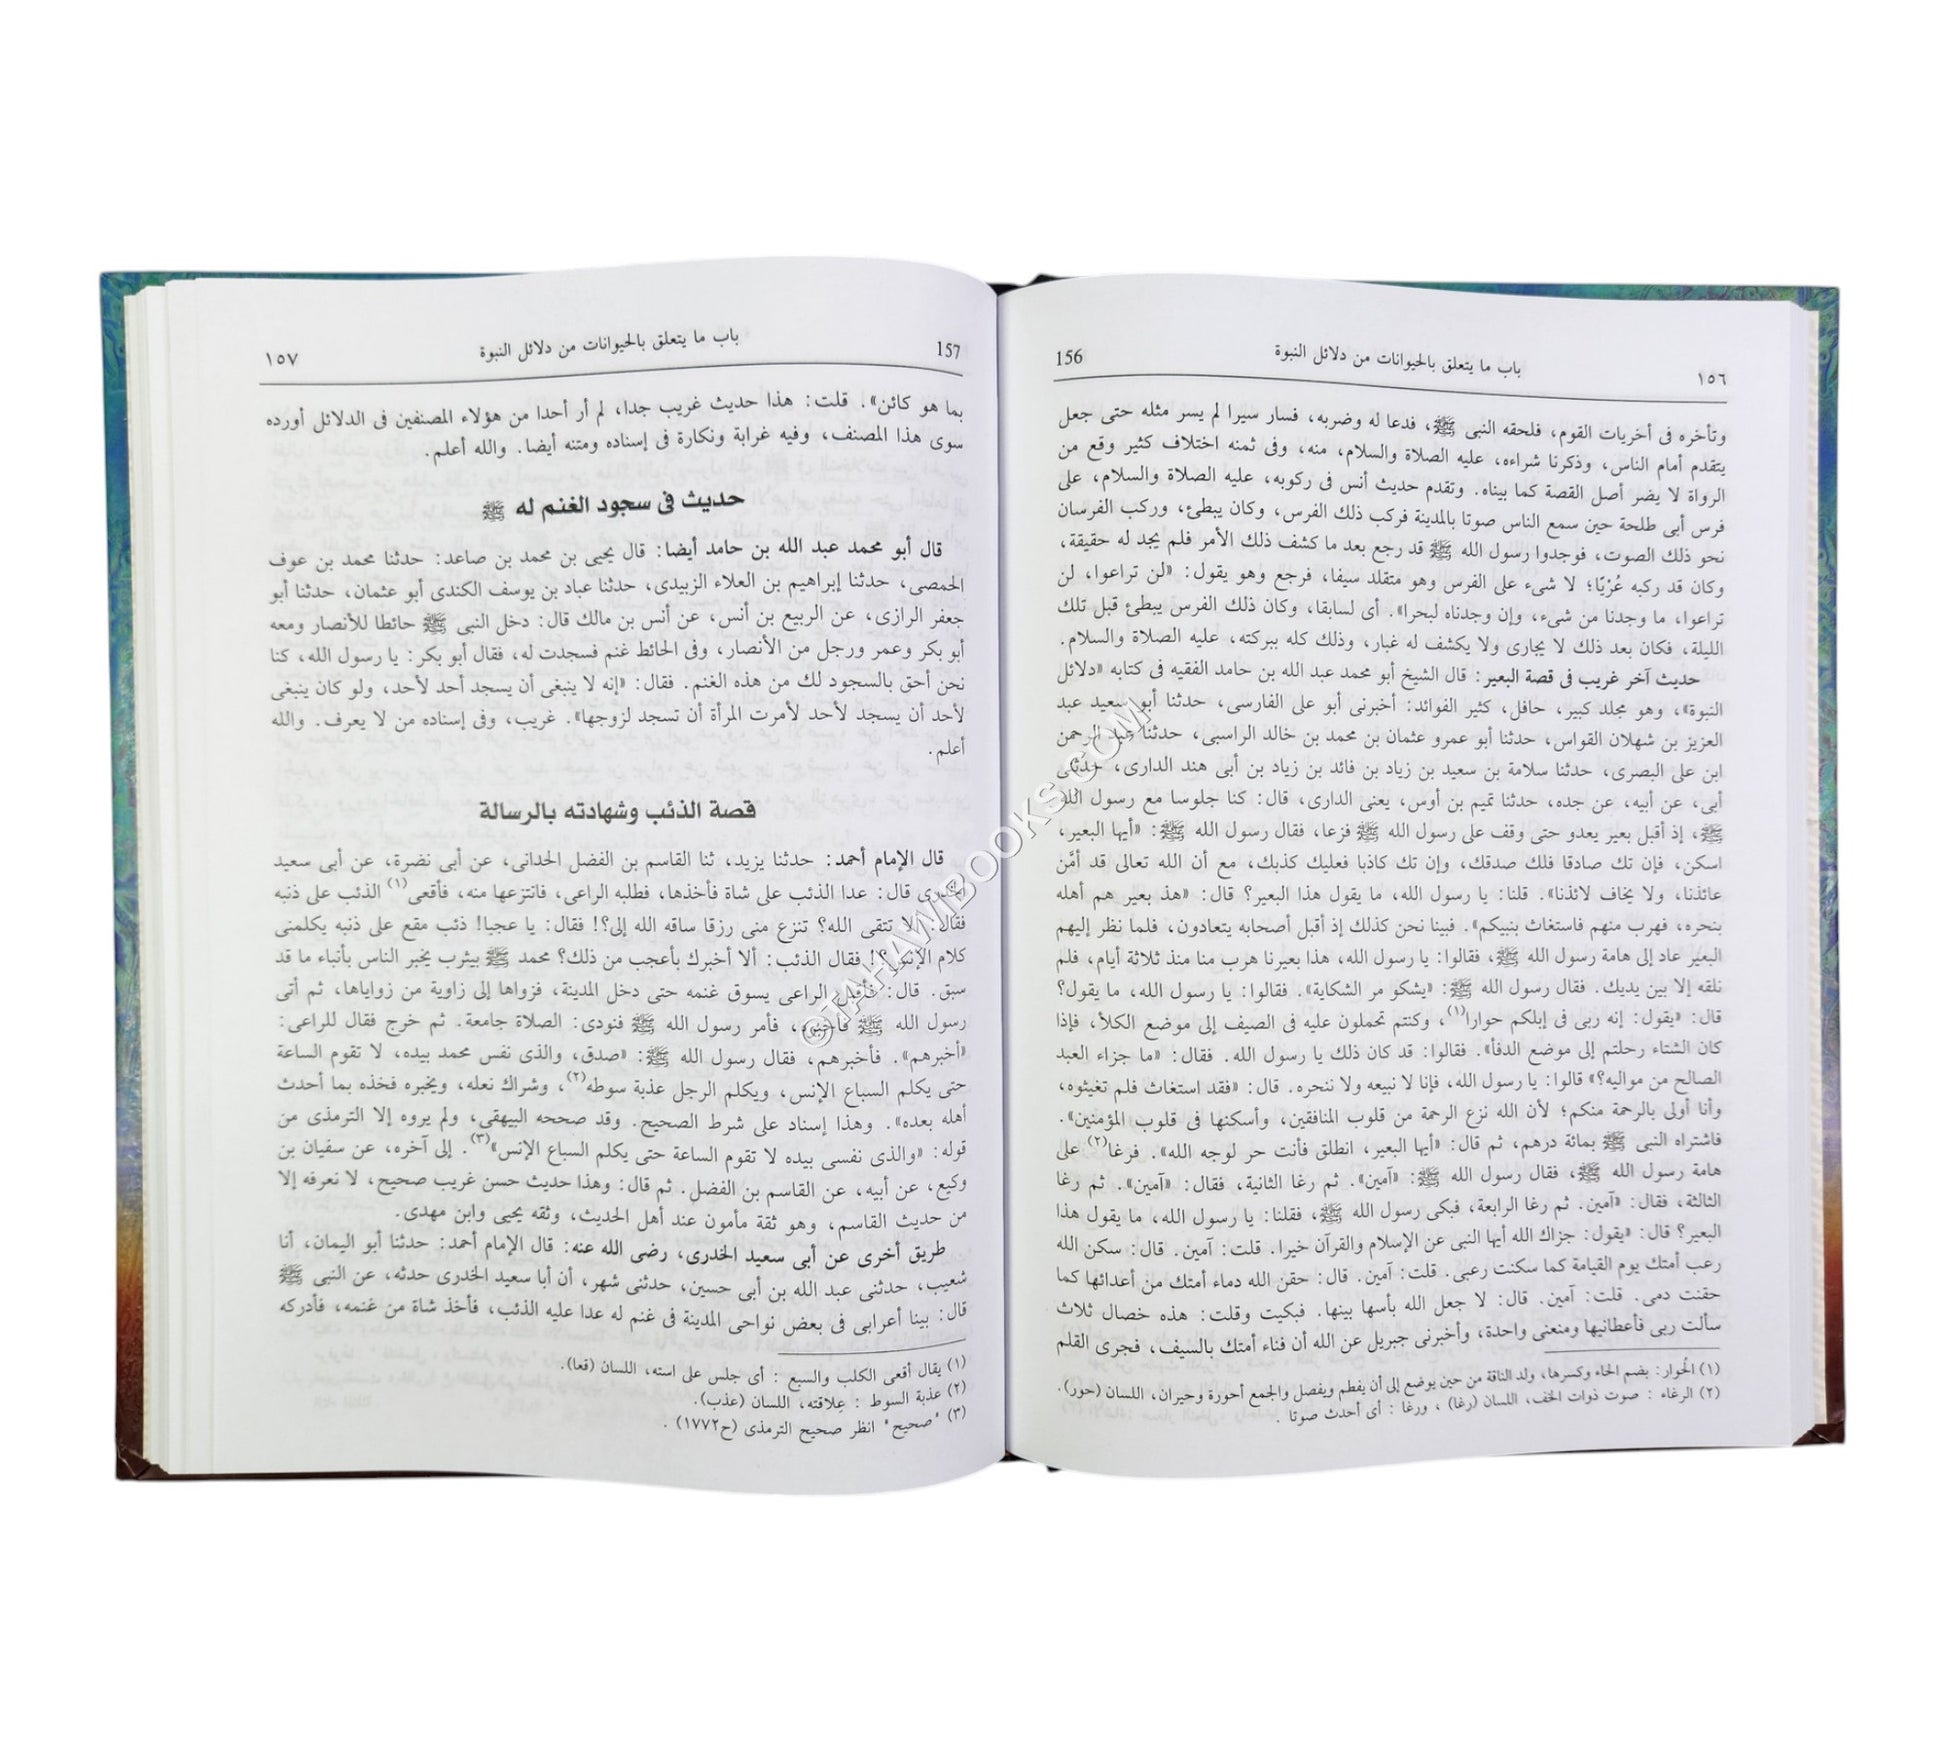 ١٥٦ باب ما يتعلق بالحيوانات من دلائل النبوة 156
وتأخره فى أخريات القوم، فلحقه النبى ﷺ، فدعا له وضربه، فسار سيرا لم يسر مثله حتى جعل
يتقدم أمام الناس، وذكرنا شراءه، عليه الصلاة والسلام، منه، وفى ثمنه اختلاف كثير وقع من
الرواة لا يضر أصل القصة كما بيناه. وتقدم حديث أنس فى ركوبه، عليه الصلاة والسلام، على
فرس أبى طلحة حين سمع الناس صوتا بالمدينة فركب ذلك الفرس، وكان يبطئ، وركب الفرسان
نحو ذلك الصوت، فوجدوا رسول الله ﷺ قد رجع بعد ما كشف ذلك الأمر فلم يجد له حقيقة،
وكان قد ركبه عُرْيًا؛ لا شىء على الفرس وهو متقلد سيفا، فرجع وهو يقول: «لن تراعوا، لن
تراعوا، ما وجدنا من شىء، وإن وجدناه لبحرا». أى لسابقا، وكان ذلك الفرس يبطئ قبل تلك
الليلة، فكان بعد ذلك لا يجارى ولا يكشف له غبار، وذلك كله ببركته، عليه الصلاة والسلام.
حديث آخر غريب فى قصة البعير: قال الشيخ أبو محمد عبد الله بن حامد الفقيه فى كتابه «دلائل
النبوة»، وهو مجلد كبير، حافل، كثير الفوائد: أخبرنى أبو على الفارسى، حدثنا أبو سعيد عبد
العزيز بن شهلان القواس، حدثنا أبو عمرو عثمان بن محمد بن خالد الراسبى، حدثنا عبد الرحمن
ابن على البصرى، حدثنا سلامة بن سعيد بن زياد بن فائد بن زياد بن أبى هند الدارى، حدثنى
أبى، عن أبيه، عن جده، حدثنا تميم بن أوس، يعنى الدارى، قال: كنا جلوسا مع رسول الله
ﷺ، إذ أقبل بعير يعدو حتى وقف على رسول الله ﷺ فزعا، فقال رسول الله ﷺ: «أيها البعير،
اسكن، فإن تك صادقا فلك صدقك، وإن تك كاذبا فعليك كذبك، مع أن الله تعالى قد أمَّن
عائذنا، ولا يخاف لائذنا». قلنا: يا رسول الله، ما يقول هذا البعير؟ قال: «هذ بعير هم أهله
بنحره، فهرب منهم فاستغاث بنبيكم». فبينا نحن كذلك إذ أقبل أصحابه يتعادون، فلما نظر إليهم
البعير عاد إلى هامة رسول الله ﷺ، فقالوا: يا رسول الله، هذا بعيرنا هرب منا منذ ثلاثة أيام، فلم
نلقه إلا بين يديك. فقال رسول الله ﷺ: «يشكو مر الشكاية». فقالوا: يا رسول الله، ما يقول؟
قال: «يقول: إنه ربى فى إبلكم حوارا(١)، وكنتم تحملون عليه فى الصيف إلى موضع الكلأ، فإذا
كان الشتاء رحلتم إلى موضع الدفأ». فقالوا: قد كان ذلك يا رسول الله. فقال: «ما جزاء العبد
الصالح من مواليه؟» قالوا: يا رسول الله، فإنا لا نبيعه ولا ننحره. قال: «فقد استغاث فلم تغيثوه،
وأنا أولى بالرحمة منكم؛ لأن الله نزع الرحمة من قلوب المنافقين، وأسكنها فى قلوب المؤمنين».
فاشتراه النبى ﷺ بمائة درهم، ثم قال: «أيها البعير، انطلق فأنت حر لوجه الله». فرغا(٢) على
هامة رسول الله ﷺ، فقال رسول الله ﷺ: «آمين». ثم رغا الثانية، فقال: «آمين». ثم رغا
الثالثة، فقال: «آمين. ثم رغا الرابعة، فبكى رسول الله ﷺ، فقلنا: يا رسول الله، ما يقول هذا
البعير؟ قال: «يقول: جزاك الله أيها النبى عن الإسلام والقرآن خيرا. قلت: آمين. قال: سكن الله
رعب أمتك يوم القيامة كما سكنت رعبى. قلت: آمين. قال: حقن الله دماء أمتك من أعدائها كما
حقنت دمى. قلت: آمين. قال: لا جعل الله بأسها بينها. فبكيت وقلت: هذه خصال ثلاث
سألت ربى فأعطانيها ومنعنى واحدة، وأخبرنى جبريل عن الله أن فناء أمتك بالسيف، فجرى القلم
(١) الحُوار: بضم الحاء وكسرها، ولد الناقة من حين يوضع إلى أن يفطم ويفصل والجمع أحورة وحيران، اللسان (حور).
(٢) الرغاء : صوت ذوات الخف، اللسان (رغا) ، ورغا : أى أحدث صوتا .
157 باب ما يتعلق بالحيوانات من دلائل النبوة ١٥٧
بما هو كائن». قلت: هذا حديث غريب جدا، لم أر أحدا من هؤلاء المصنفين فى الدلائل أورده
سوى هذا المصنف، وفيه غرابة ونكارة فى إسناده ومتنه أيضا. والله أعلم.
حديث فى سجود الغنم له ﷺ
قال أبو محمد عبد الله بن حامد أيضا: قال يحيى بن محمد بن صاعد: حدثنا محمد بن عوف
الحمصى، حدثنا إبراهيم بن العلاء الزبيدى، حدثنا عباد بن يوسف الكندى أبو عثمان، حدثنا أبو
جعفر الرازى، عن الربيع بن أنس، عن أنس بن مالك قال: دخل النبى ﷺ حائطا للأنصار ومعه
أبو بكر وعمر ورجل من الأنصار، وفى الحائط غنم فسجدت له، فقال أبو بكر: يا رسول الله، كنا
نحن أحق بالسجود لك من هذه الغنم. فقال: «إنه لا ينبغى أن يسجد أحد لأحد، ولو كان ينبغى
لأحد أن يسجد لأحد لأمرت المرأة أن تسجد لزوجها». غريب، وفى إسناده من لا يعرف. والله
أعلم.
قصة الذئب وشهادته بالرسالة
قال الإمام أحمد: حدثنا يزيد، ثنا القاسم بن الفضل الحدانى، عن أبى نضرة، عن أبى سعيد
الخدرى قال: عدا الذئب على شاة فأخذها، فطلبه الراعى، فانتزعها منه، فأقعى(١) الذئب على ذنبه
فقال: ألا تتقى الله؟ تنزع منى رزقا ساقه الله إلى؟! فقال: يا عجبا! ذئب مقع على ذنبه يكلمنى
كلام الإنس؟! فقال الذئب: ألا أخبرك بأعجب من ذلك؟ محمد ﷺ بيثرب يخبر الناس بأنباء ما قد
سبق. قال: فأقبل الراعى يسوق غنمه حتى دخل المدينة، فزواها إلى زاوية من زواياها، ثم أتى
رسول الله ﷺ فأخبره، فأمر رسول الله ﷺ فنودى: الصلاة جامعة. ثم خرج فقال للراعى:
«أخبرهم». فأخبرهم، فقال رسول الله ﷺ: «صدق، والذى نفس محمد بيده، لا تقوم الساعة
حتى يكلم السباع الإنس، ويكلم الرجل عذبة سوطه(٢)، وشراك نعله، ويخبره فخذه بما أحدث
أهله بعده». وهذا إسناد على شرط الصحيح. وقد صححه البيهقى، ولم يروه إلا الترمذى من
قوله: «والذى نفسى بيده لا تقوم الساعة حتى يكلم السباع الإنس»(٣). إلى آخره، عن سفيان بن
وكيع، عن أبيه، عن القاسم بن الفضل. ثم قال: وهذا حديث حسن غريب صحيح، لا نعرفه إلا
من حديث القاسم، وهو ثقة مأمون عند أهل الحديث، وثقه يحيى وابن مهدى.
طريق أخرى عن أبى سعيد الخدرى، رضى الله عنه: قال الإمام أحمد: حدثنا أبو اليمان، أنا
شعيب، حدثنى عبد الله بن أبى حسين، حدثنى شهر، أن أبا سعيد الخدرى حدثه، عن النبى ﷺ
قال: بينا أعرابى فى بعض نواحى المدينة فى غنم له عدا عليه الذئب، فأخذ شاة من غنمه، فأدركه
(١) يقال أقعى الكلب والسبع : أى جلس على استه، اللسان (قعا).
(٢) عذبة السوط : عِلاقته، اللسان (عذب).
(٣) "صحيح" انظر صحيح الترمذى (ح١٧٧٢) .
©TAHAWIBOOKS.COM